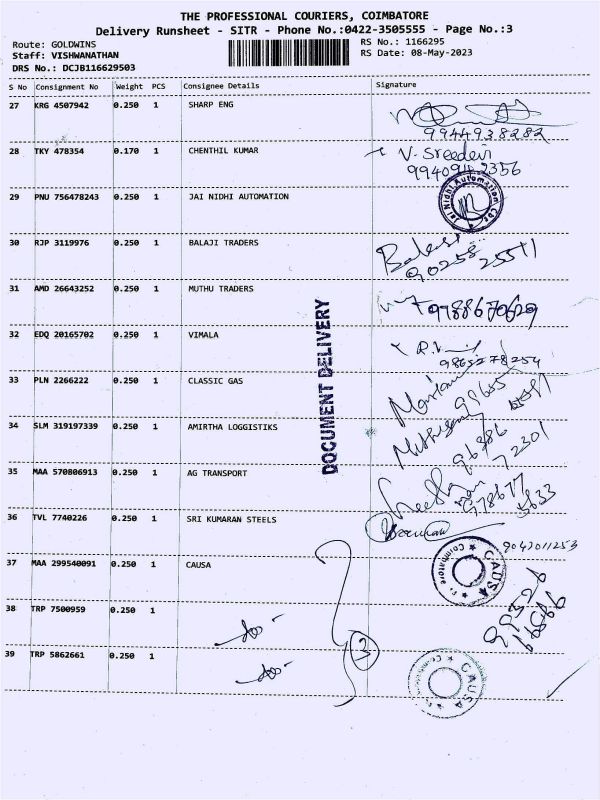 THE PROFESSIONAL COURIERS, COIMBATORE
Delivery Runsheet - SITR - Phone No.:0422-3505555 - Page No.:3
Route: GOLDWINS
RS No.: 1166295
Staff: VISHWANATHAN
RS Date: 08-May-2023
DRS No.: DCJB116629503
S No Consignment No Weight PCS Consignee Details Signature
27 KRG 4507942 0.250 1 SHARP ENG
9944938282
28 TKY 478354 0.170 1 CHENTHIL KUMAR V. Sreedevi
29 PNU 756478243 0.250 1 JAI NIDHI AUTOMATION Jai Nidhi Automation Cbe
30 RJP 3119976 0.250 1 BALAJI TRADERS Balaji
90258 25511
31 AMD 26643252 0.250 1 MUTHU TRADERS 9788670629
32 EDQ 20165702 0.250 1 VIMALA
9865278254
33 PLN 2266222 0.250 1 CLASSIC GAS
34 SLM 319197339 0.250 1 AMIRTHA LOGGISTIKS
96886
72301
35 MAA 570806913 0.250 1 AG TRANSPORT
36 TVL 7740226 0.250 1 SRI KUMARAN STEELS
9042011253
37 MAA 299540091 0.250 1 CAUSA CAUSA Coimbatore
38 TRP 7500959 0.250 1 -do-
3
39 TRP 5862661 0.250 1 -do- CAUSA
DOCUMENT DELIVERY